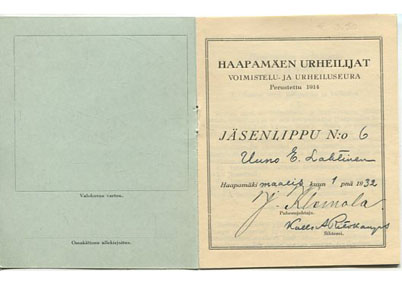 Valokuvan varten.
Omakätinen allekirjoitus.
HAAPAMÄEN URHEILIJAT
VOIMISTELU- JA URHEILUSEURA
Perustettu 1914
JÄSENLIPPU N:o 6
Uuno E. Lahtinen
Haapamäki maalis kuun 1 pnä 1932
J. Klemola
Puheenjohtaja.
Kalle A.
Sihteeri.